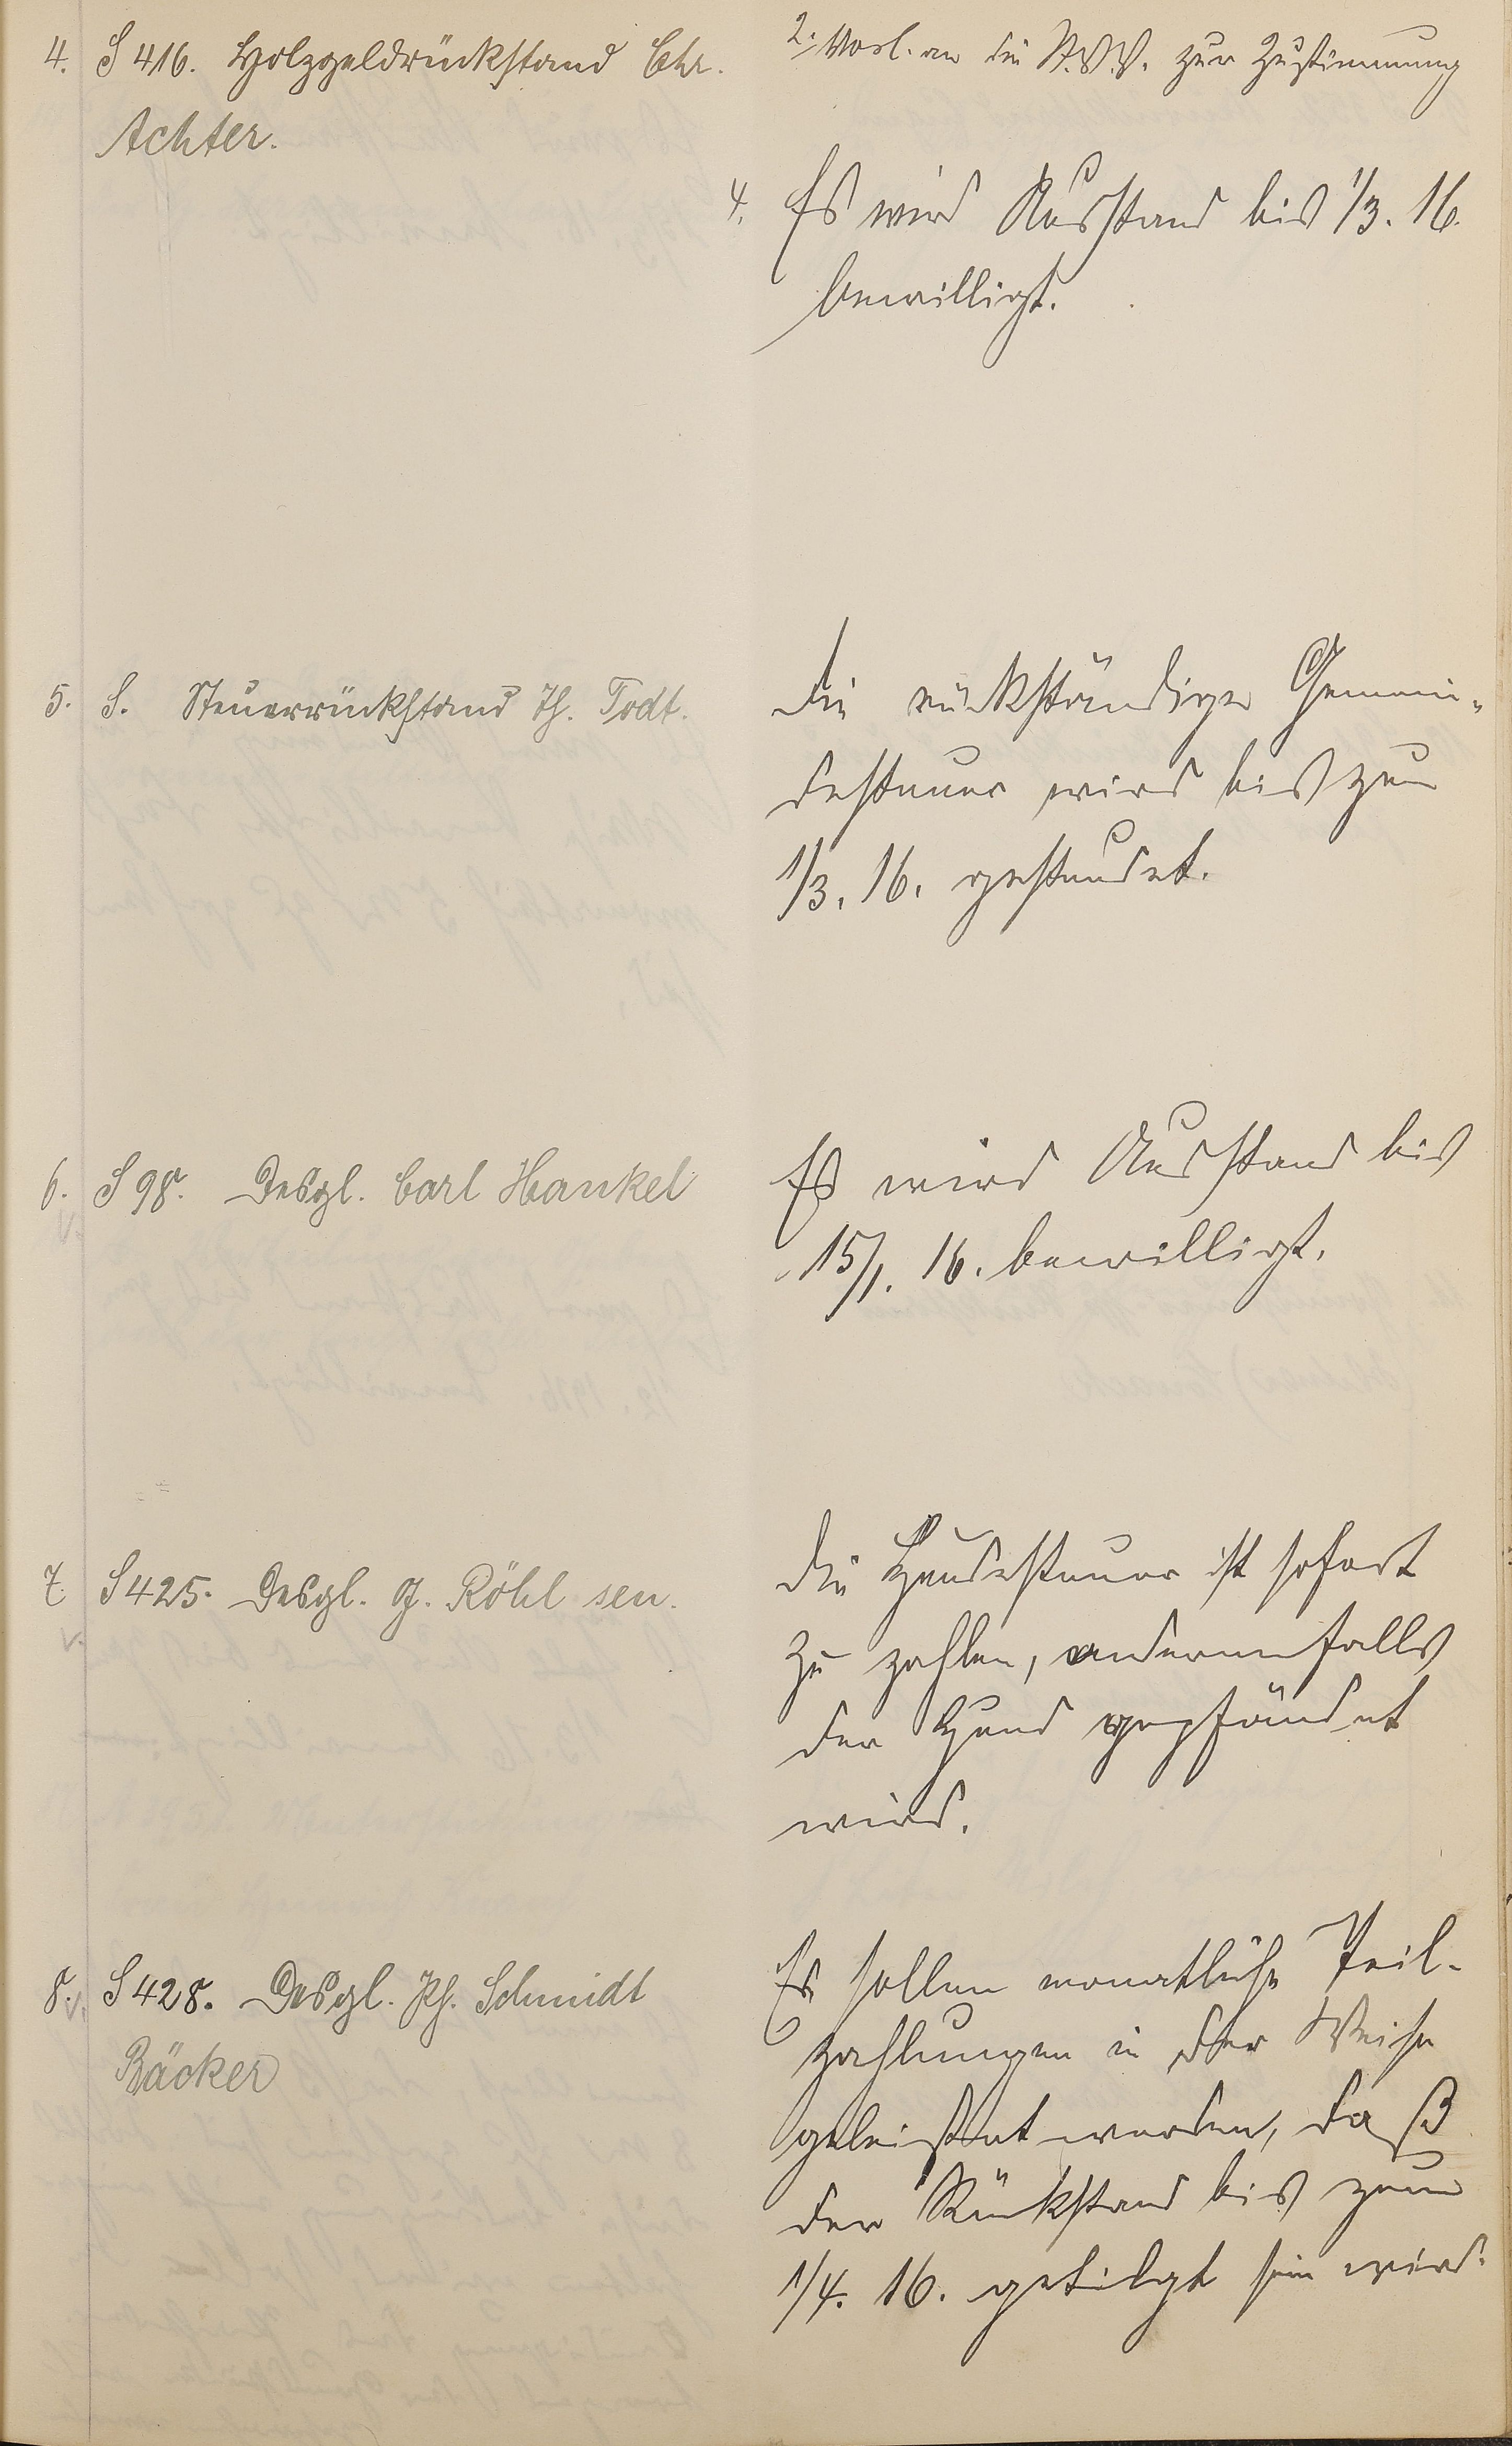 4. S 416. Holzgeldrückstand Chr.
Achter.
2. Vorl. an die St.V.V. zur Zustimmung
4. Es wird Ausstand bis 1/3. 16.
bewilligt.
5. S. Steuerrückstand Th. Todt.
Die rückständige Gemein-
destener wird bis zum
1/3. 16. gestundet.
6. S 98. Desgl. Carl Hankel
Es wird Ausstand bis
15/1. 16. bewilligt.
7. S 425. Desgl. G. Röhl sen.
Die Hundesteuer ist sofort
zu zahlen, anderenfalls
der Hund gepfändet
wird.
8. S 428. Desgl. Ph. Schmidt
Bäcker
Es sollen monatliche Teil-
zahlungen in der Weise
geleistet werden, daß
der Rückstand bis zum
1/4. 16. getilgt sein wird.